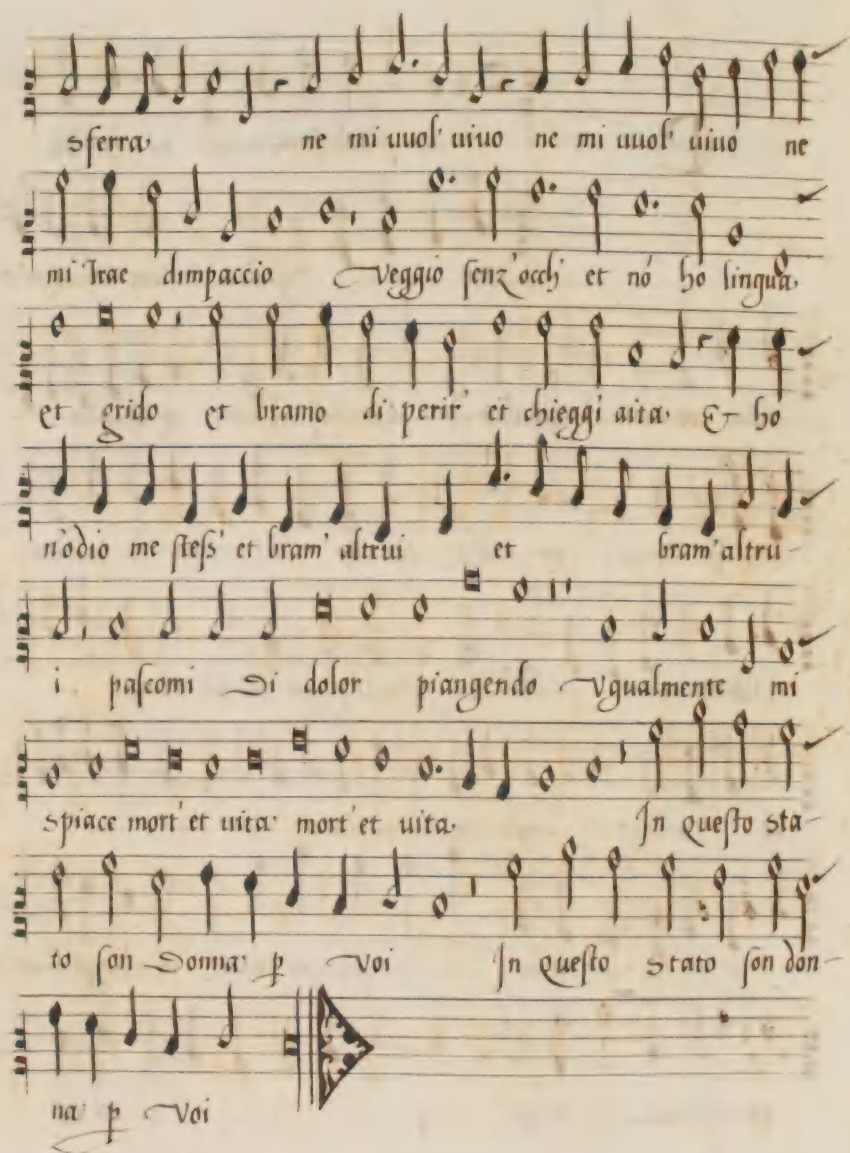 sferra ne mi vuol' vivo ne mi vuol' vivo ne
mi trae dimpaccio Veggio senz'occh' et nó ho lingua
et grido et bramo di perir' et chieggi aita Et ho
n'odio me stess' et bram' altrui et bram' altru-
i pascomi Di dolor piangendo Vgualmente mi
spiace mort' et vita mort' et vita In questo sta-
to son Donna p Voi In questo stato son don-
na p Voi